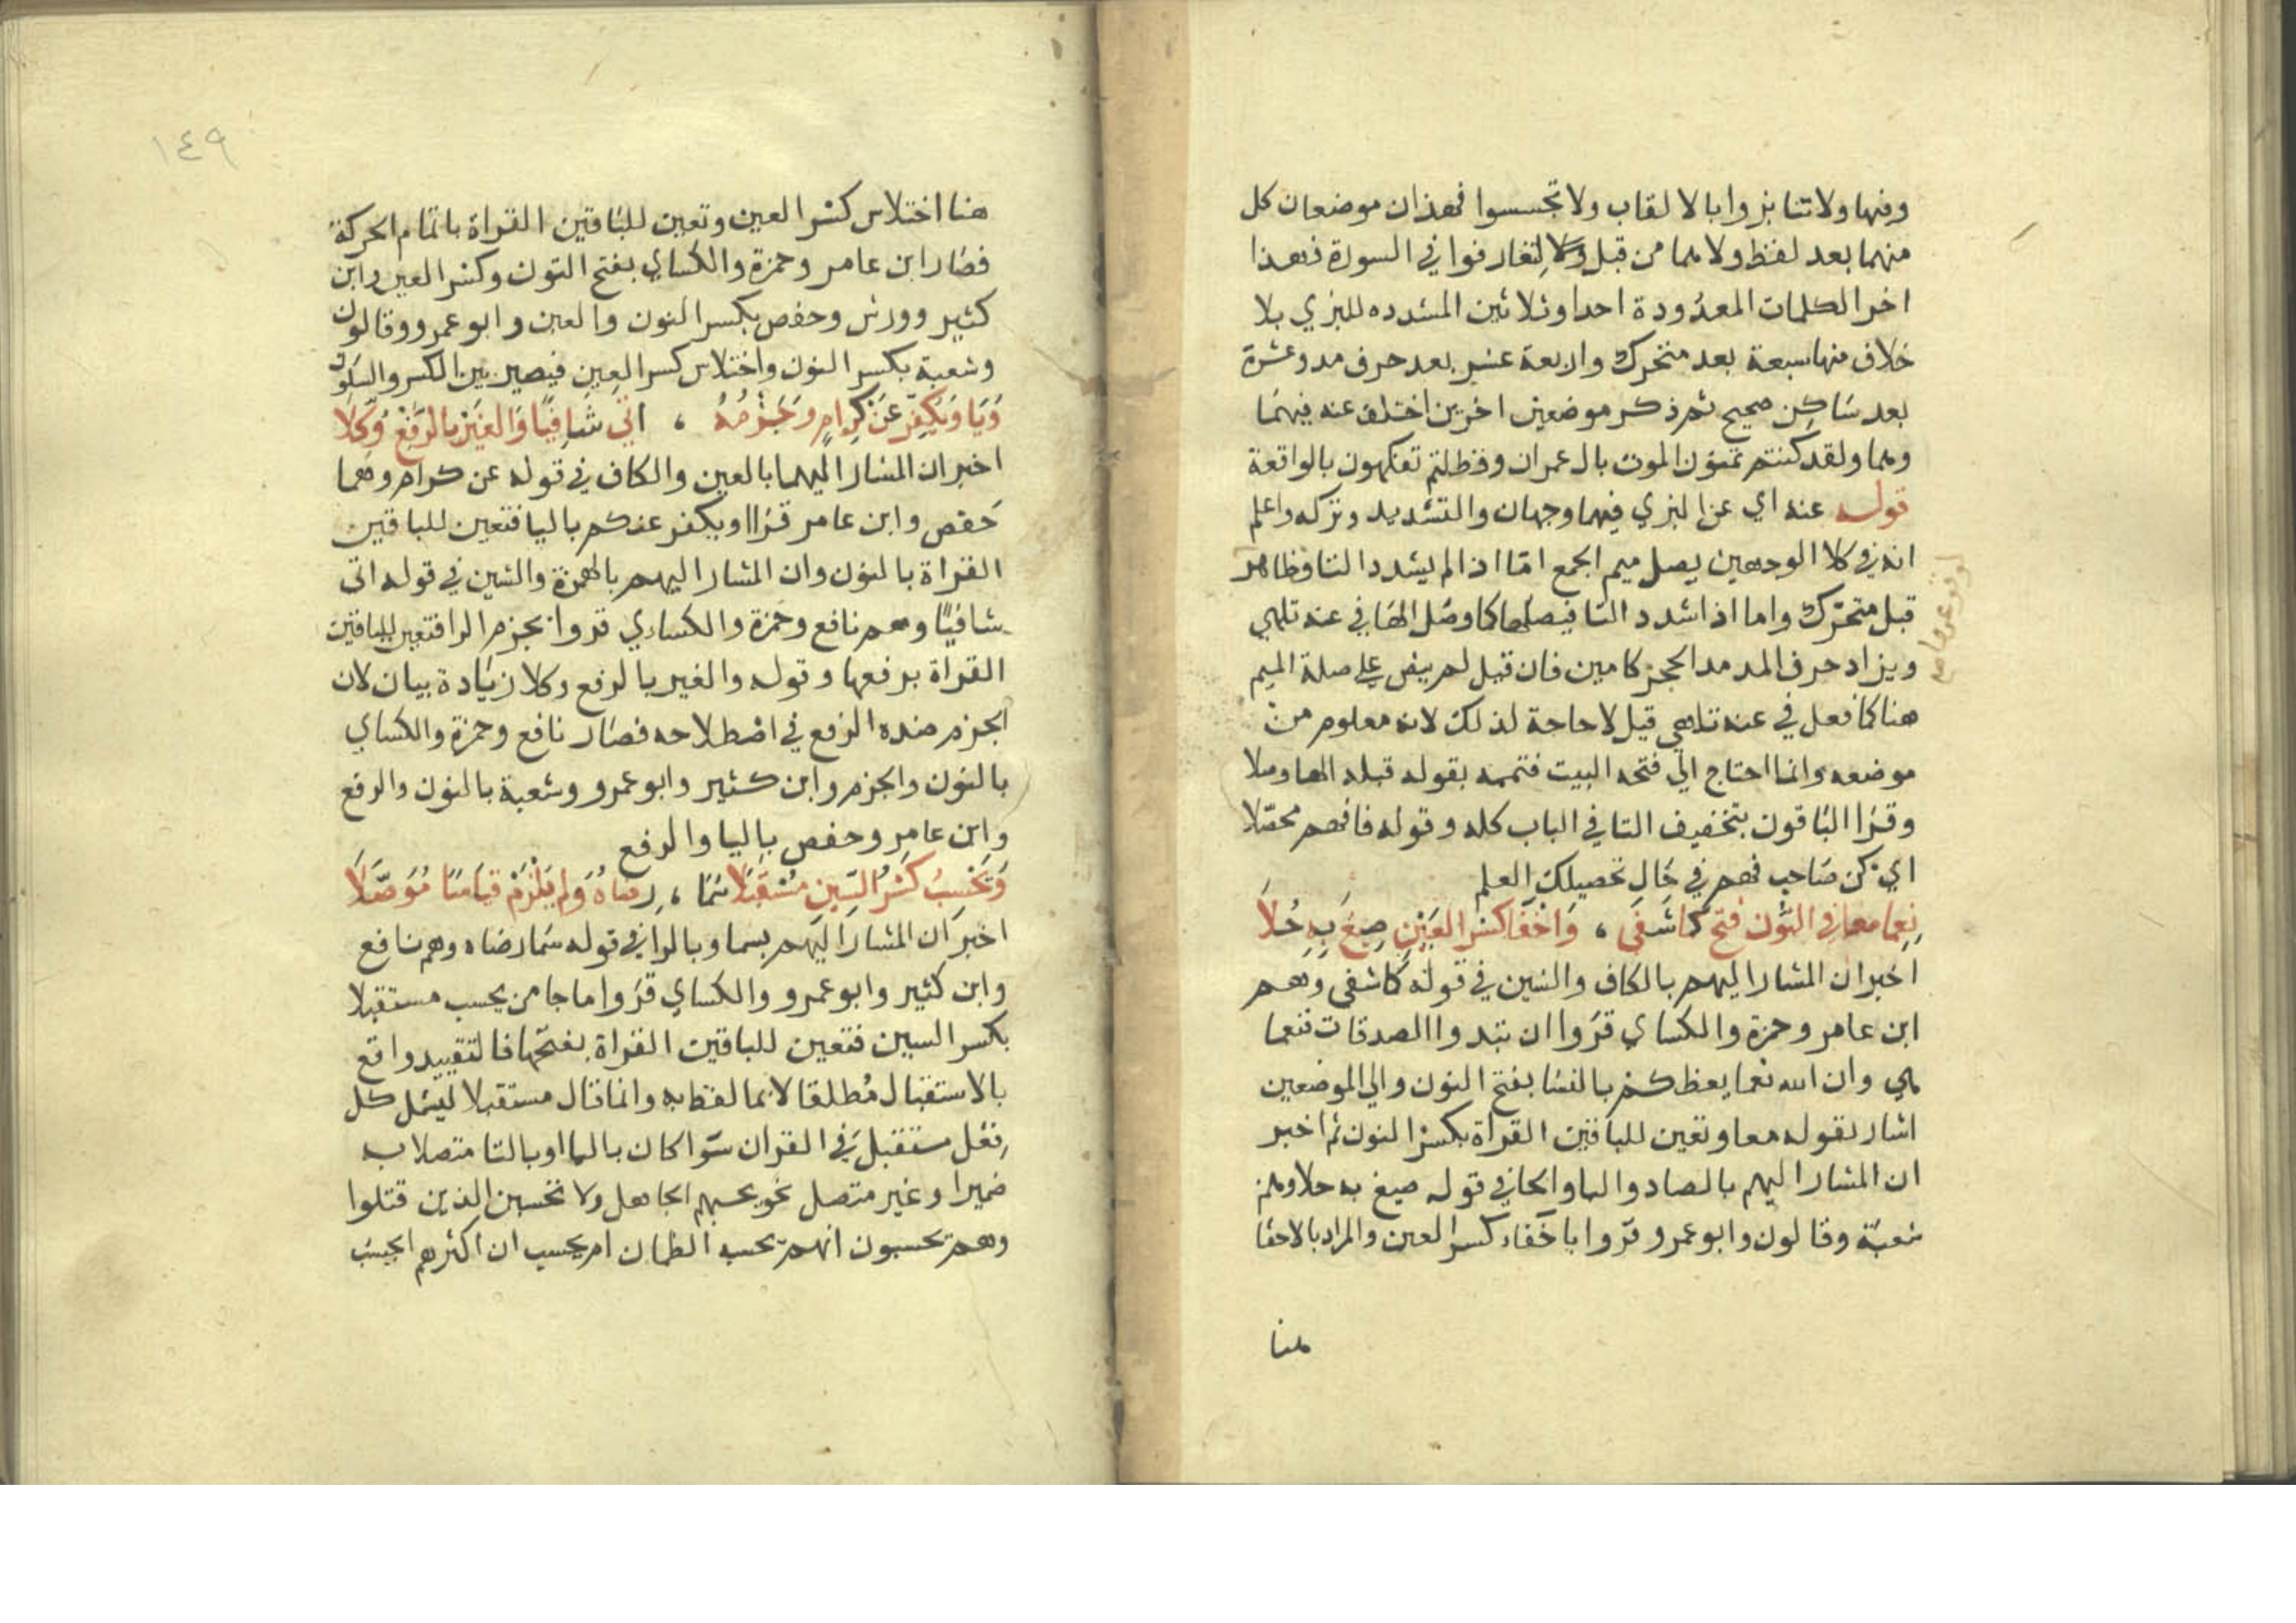 وفيها ولا تنابزوا بالالقاب ولا تجسسوا فهذان موضعان كل
منهما بعد لفظ ولا مما من قبل ولا لتعارفوا في السورة فهذا
اخر الكلمات المعدودة احدا وثلاثين المشدده للبزي بلا
خلاف منها سبعة بعد متحرك واربعة عشر بعد حرف مد وعشرة
بعد ساكن صحيح ثم ذكر موضعين اخرين اختلف عنه فيهما
وهما ولقد كنتم تمنون الموت بال عمران وفظلتم تفكهون بالواقعة
قوله عنه اي عن البزي فيهما وجهان والتشديد وتركه واعلم
انه في كلا الوجهين يصل ميم الجمع اما اذا لم يشدد التا فظاهر
قبل متحرك واما اذا شدد التا فيصلها كما وصل الها في عنه تلهي
ويزاد حرف المد مد الحجز كامين فان قيل لم ينص على صلة الميم
هنا كما فعل في عنه تلهي قيل لا حاجة لذلك لانه معلوم من
موضعه وانما احتاج الي فتحه البيت فتممه بقوله قبله الها وصلا
وقرا الباقون بتخفيف التا في الباب كله وقوله فافهم محصلا
اي كن صاحب فهم في حال تحصيلك العلم
نعما معا في النون فتح كما شفى ، واخفا كسر العين صيغ به حلا
اخبر ان المشار اليهم بالكاف والشين في قوله كما شفى وهم
ابن عامر وحمزة والكساي قروا ان تبدوا الصدقات فنعما
هي وان الله نعما يعظكم بالنسا بفتح النون والي الموضعين
اشار بقوله معا وتعين للباقين القراة بكسر النون ثم اخبر
ان المشار اليهم بالصاد والبا والحا في قوله صيغ به حلا وهم
شعبة وقالون وابو عمرو قروا باخفاء كسر العين والمراد بالاخفا
هنا
١٤٩
هنا اختلاس كسر العين وتعين للباقين القراة باتمام الحركة
فصار ابن عامر وحمزة والكساي بفتح النون وكسر العين وابن
كثير وورش وحفص بكسر النون والعين وابو عمرو وقالون
وشعبة بكسر النون واختلاس كسر العين فيصير بين الكسر والسكون
ويا ونكفر عن كرام وجزمه ، اتى شافيا والغير بالرفع وكلا
اخبر ان المشار اليهما بالعين والكاف في قوله عن كرام وهما
حفص وابن عامر قراا ويكفر عنكم باليا فتعين للباقين
القراة بالنون وان المشار اليهم بالهمزة والشين في قوله اتى
شافيا وهم نافع وحمزة والكساي قروا بجزم الرا فتعين للباقين
القراة برفعها وقوله والغير بالرفع وكلا زيادة بيان لان
الجزم ضده الرفع في اصطلاحه فصار نافع وحمزة والكساي
بالنون والجزم وابن كثير وابو عمرو وشعبة بالنون والرفع
وابن عامر وحفص باليا والرفع
وتحسب كسر السين مستقبلا سما ، رضاه ولم يلزم قياسا موصلا
اخبر ان المشار اليهم بسما وبالرا في قوله سما رضاه وهم نافع
وابن كثير وابو عمرو والكساي قروا ما جا من يحسب مستقبلا
بكسر السين فتعين للباقين القراة بفتحها فالتقييد واقع
بالاستقبال مطلقا لا بما لفظ به وانما قال مستقبلا ليشمل كل
فعل مستقبل في القران سوا كان باليا او بالتا متصلا به
ضمير او غير متصل نحو يحسبهم الجاهل ولا تحسبن الذين قتلوا
وهم يحسبون انهم يحسبه الظمان ام يحسب ان اكثرهم ايحسب